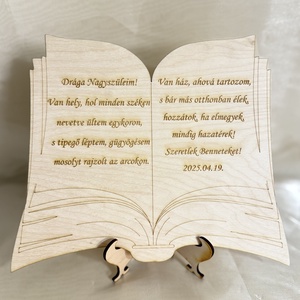 Drága Nagyszüleim!
Van hely, hol minden széken
nevetve ültem egykoron,
s tipegő léptem, gügyögésem
mosolyt rajzolt az arcokon.
Van ház, ahová tartozom,
s bár más otthonban élek,
hozzátok, ha elmegyek,
mindig hazatérek!
Szeretlek Benneteket!
2025.04.19.